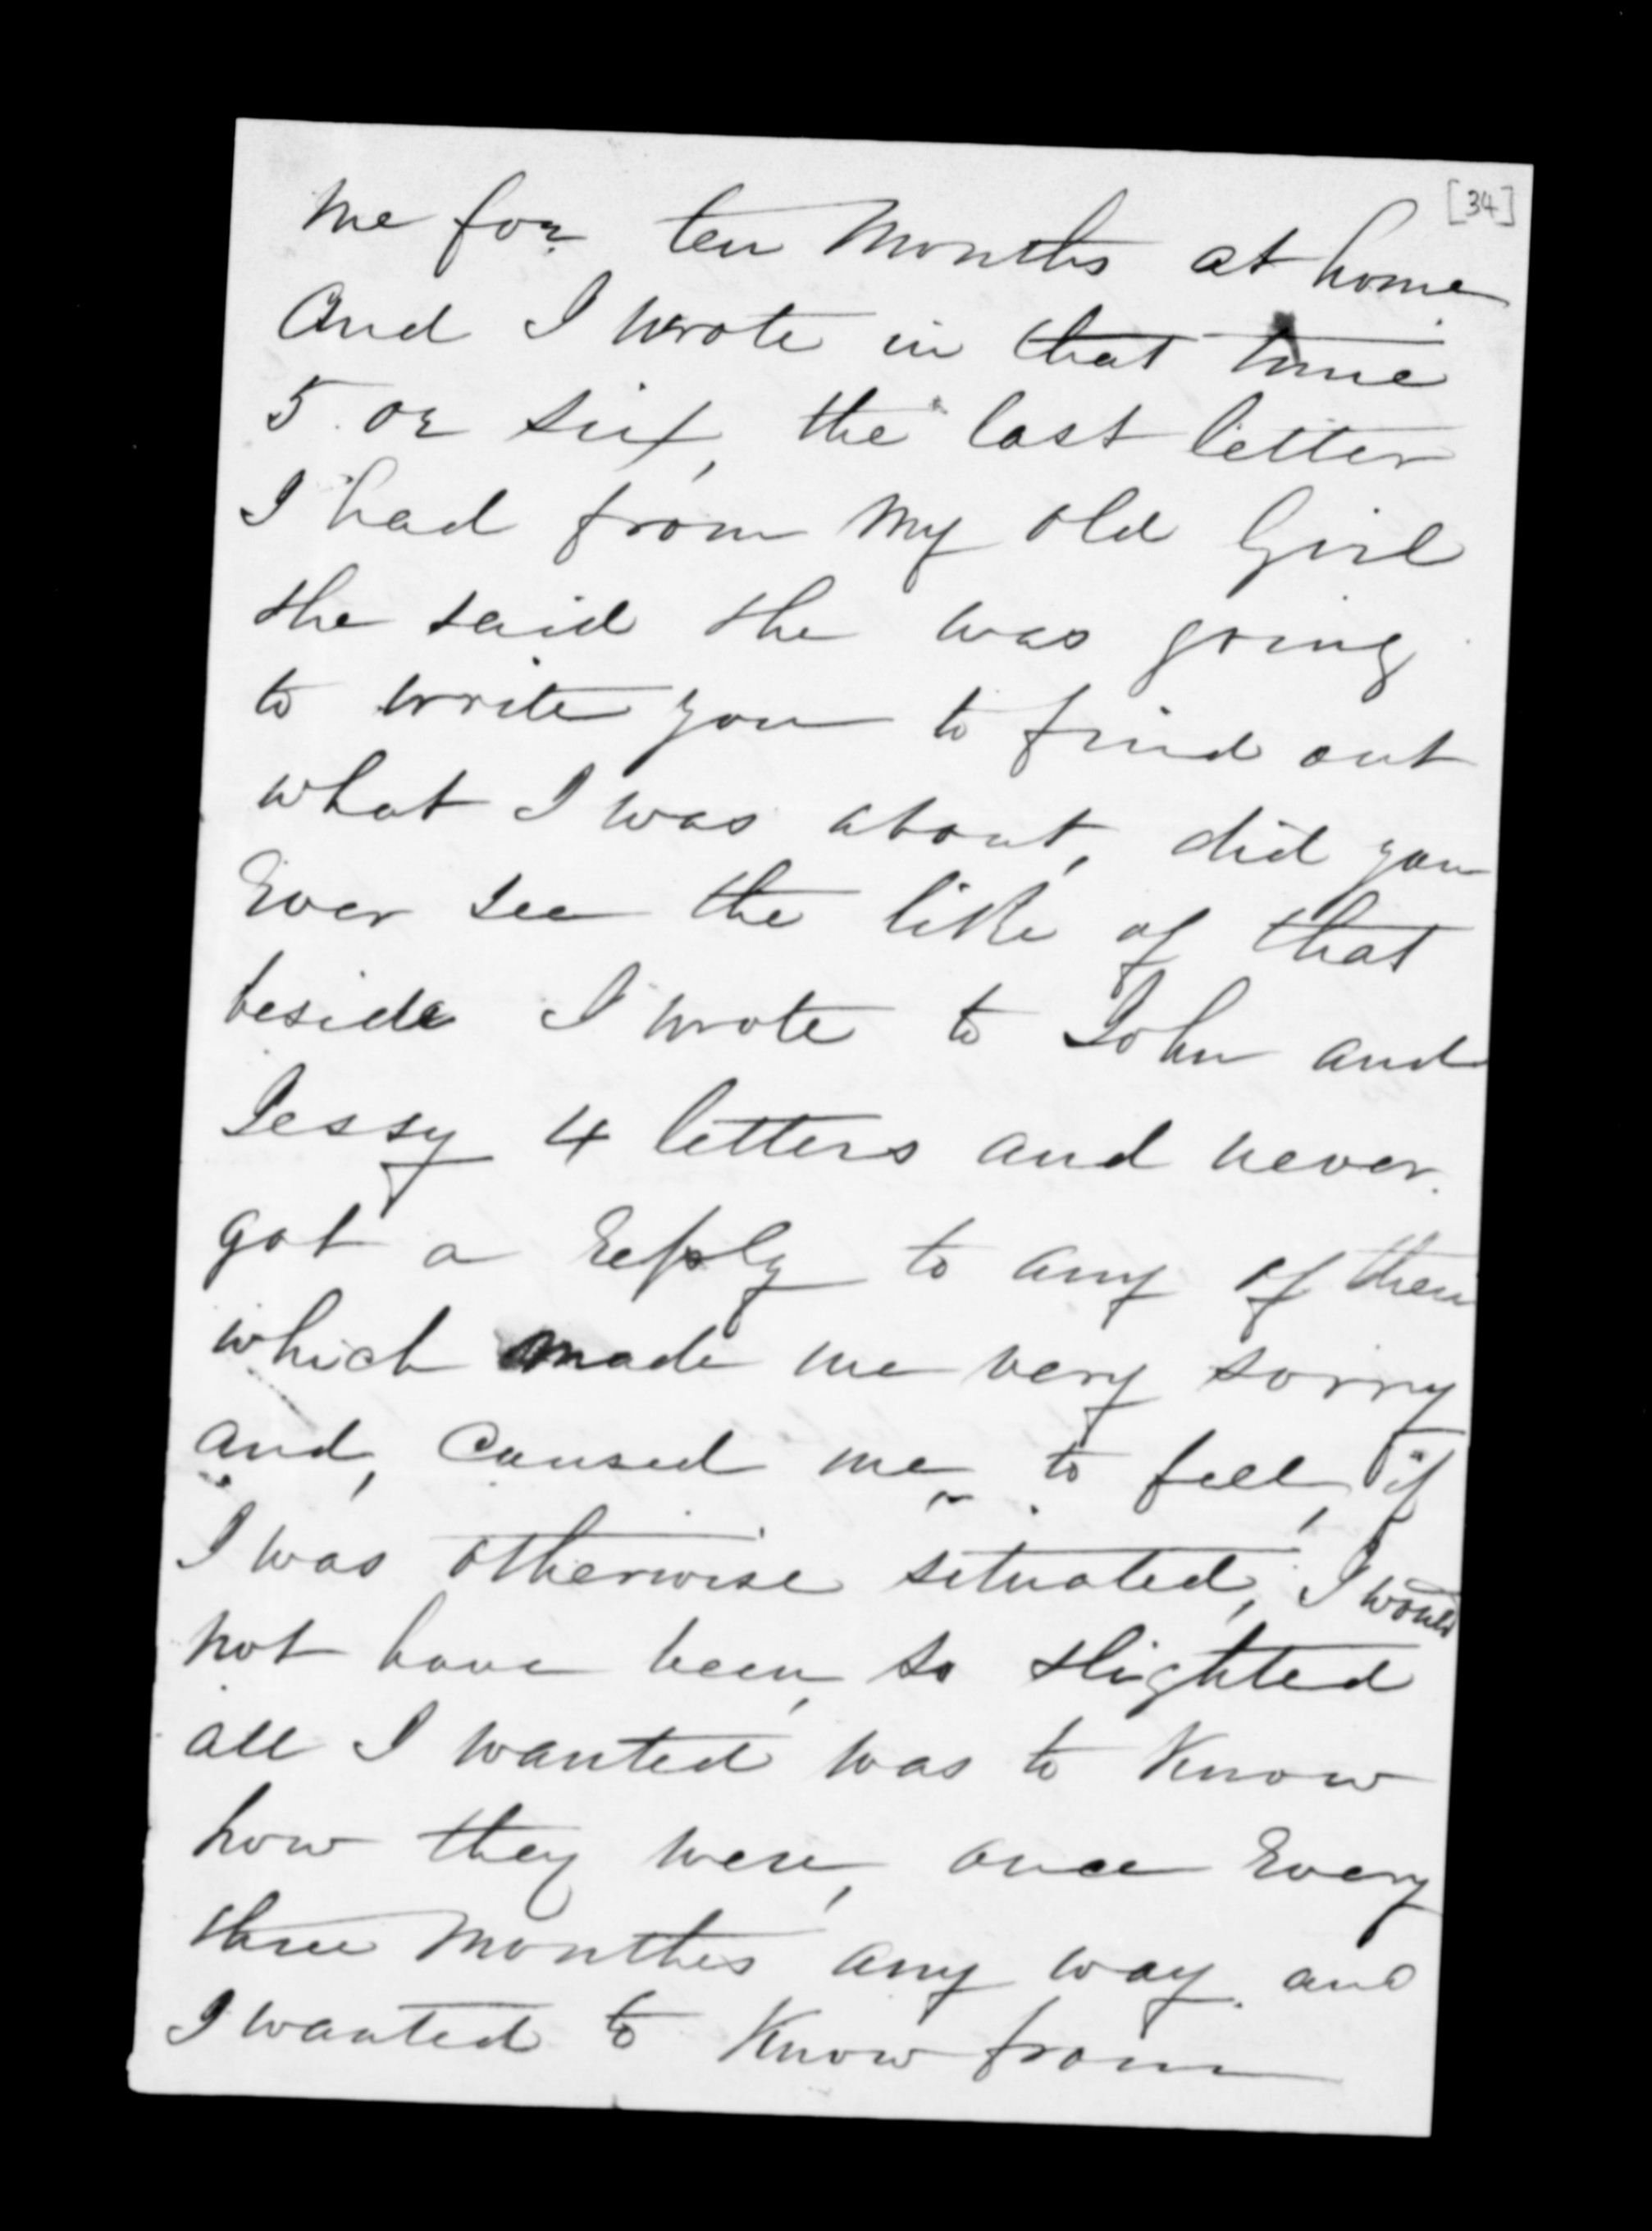 [34]
me for ten Months at home
And I wrote in that time
5 or six, the last letter
I had from My old Girl
she said she was going
to write you to find out
what I was about, did you
Ever see the like of that
beside I wrote to John and
Jessy 4 letters and never.
got a Reply to any of them
which made me very sorry
and, Caused me to feel, if
I was otherwise situated, I would
not have been, so slighted
all I wanted was to Know
how they were, once Every
three Months any way. and
I wanted to Know from